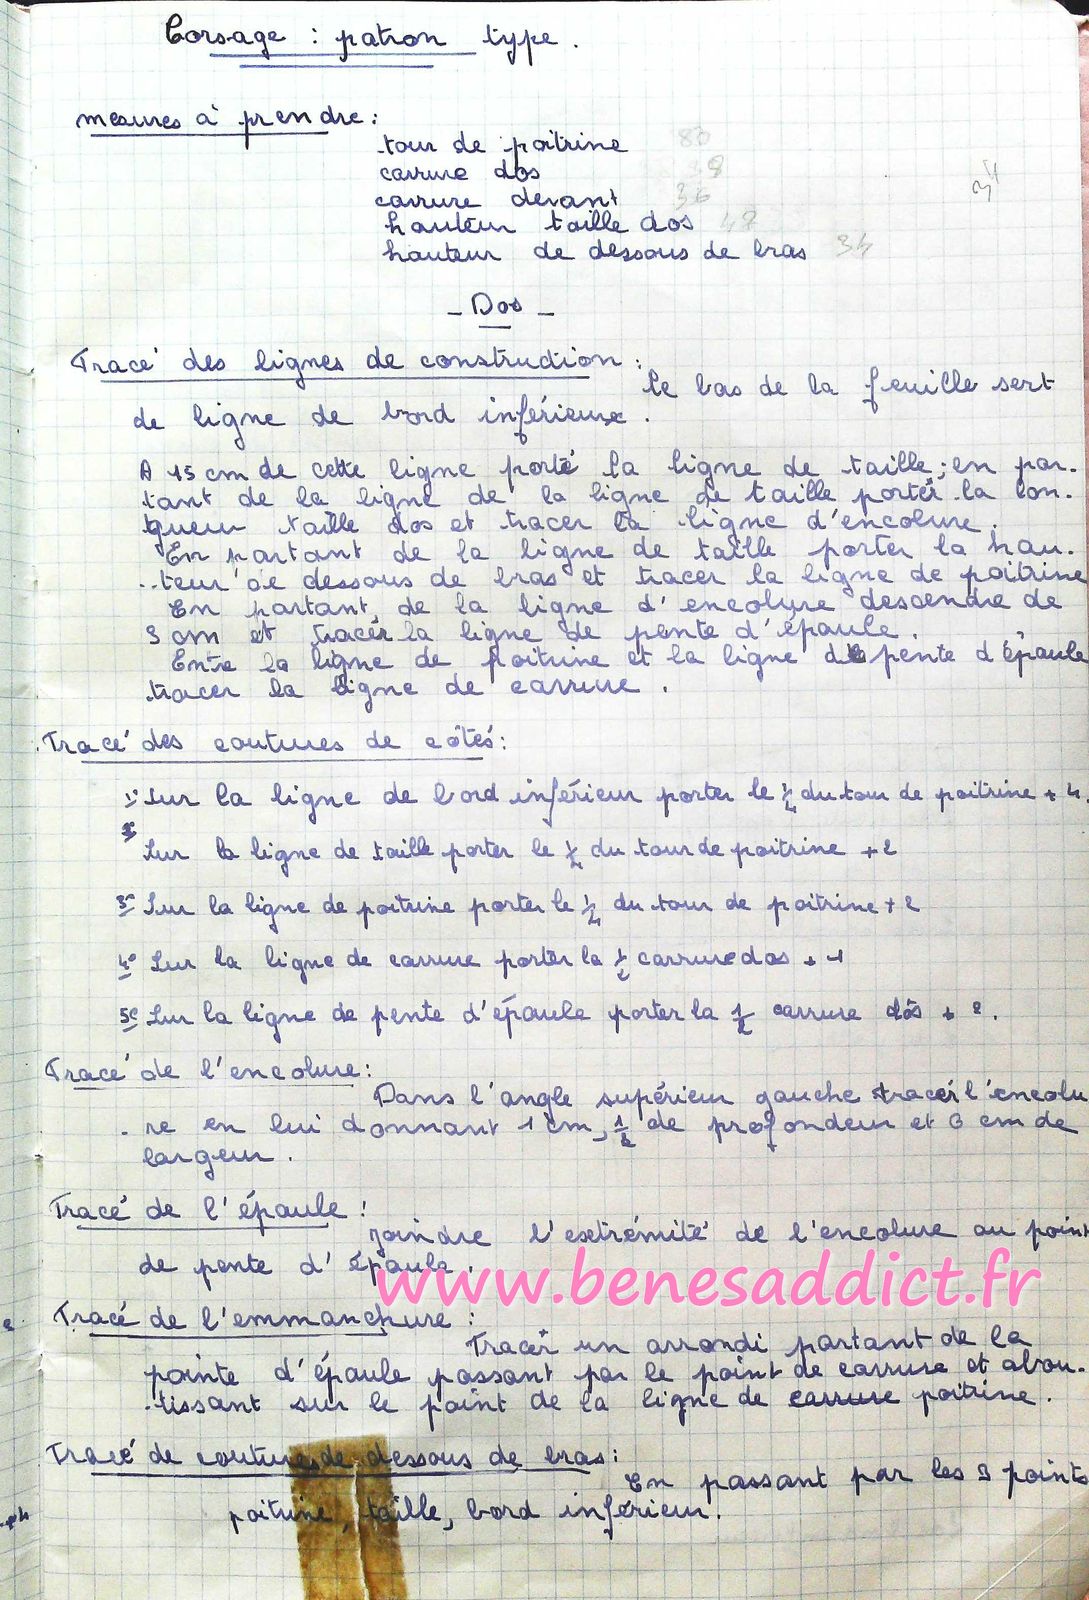 Corsage : patron type.
mesures à prendre :
tour de poitrine 80
carrure dos
carrure devant 36
hauteur taille dos
hauteur de dessous de bras 34
- Dos -
Tracé des lignes de construction :
le bas de la feuille sert
de ligne de bord inférieur.
A 15 cm de cette ligne porté la ligne de taille ; en par-
tant de la ligne de la ligne de taille porter la lon-
gueur taille dos et tracer la ligne d'encolure.
En partant de la ligne de taille porter la hau-
teur de dessous de bras et tracer la ligne de poitrine
En partant de la ligne d'encolure descendre de
3 cm et tracer la ligne de pente d'épaule.
Entre la ligne de poitrine et la ligne de pente d'épaule
tracer la ligne de carrure.
Tracé des coutures de côtés :
1° Sur la ligne de bord inférieur porter le 1/4 du tour de poitrine + 4.
Sur la ligne de taille porter le 1/4 du tour de poitrine + 2
3° Sur la ligne de poitrine porter le 1/4 du tour de poitrine + 2
4° Sur la ligne de carrure porter la 1/2 carrure dos + 1
5° Sur la ligne de pente d'épaule porter la 1/2 carrure dos + 2.
Tracé de l'encolure :
Dans l'angle supérieur gauche tracer l'encolu
re en lui donnant 1 cm, 1/2 de profondeur et 6 cm de
largeur.
Tracé de l'épaule :
joindre l'extrémité de l'encolure au point
de pente d'épaule.
www.benesaddict.fr
Tracé de l'emmanchure :
Tracer un arrondi partant de la
pointe d'épaule passant par le point de carrure et abou-
tissant sur le point de la ligne de carrure poitrine.
Tracé de coutures de dessous de bras :
En passant par les 3 points
poitrine, taille, bord inférieur.